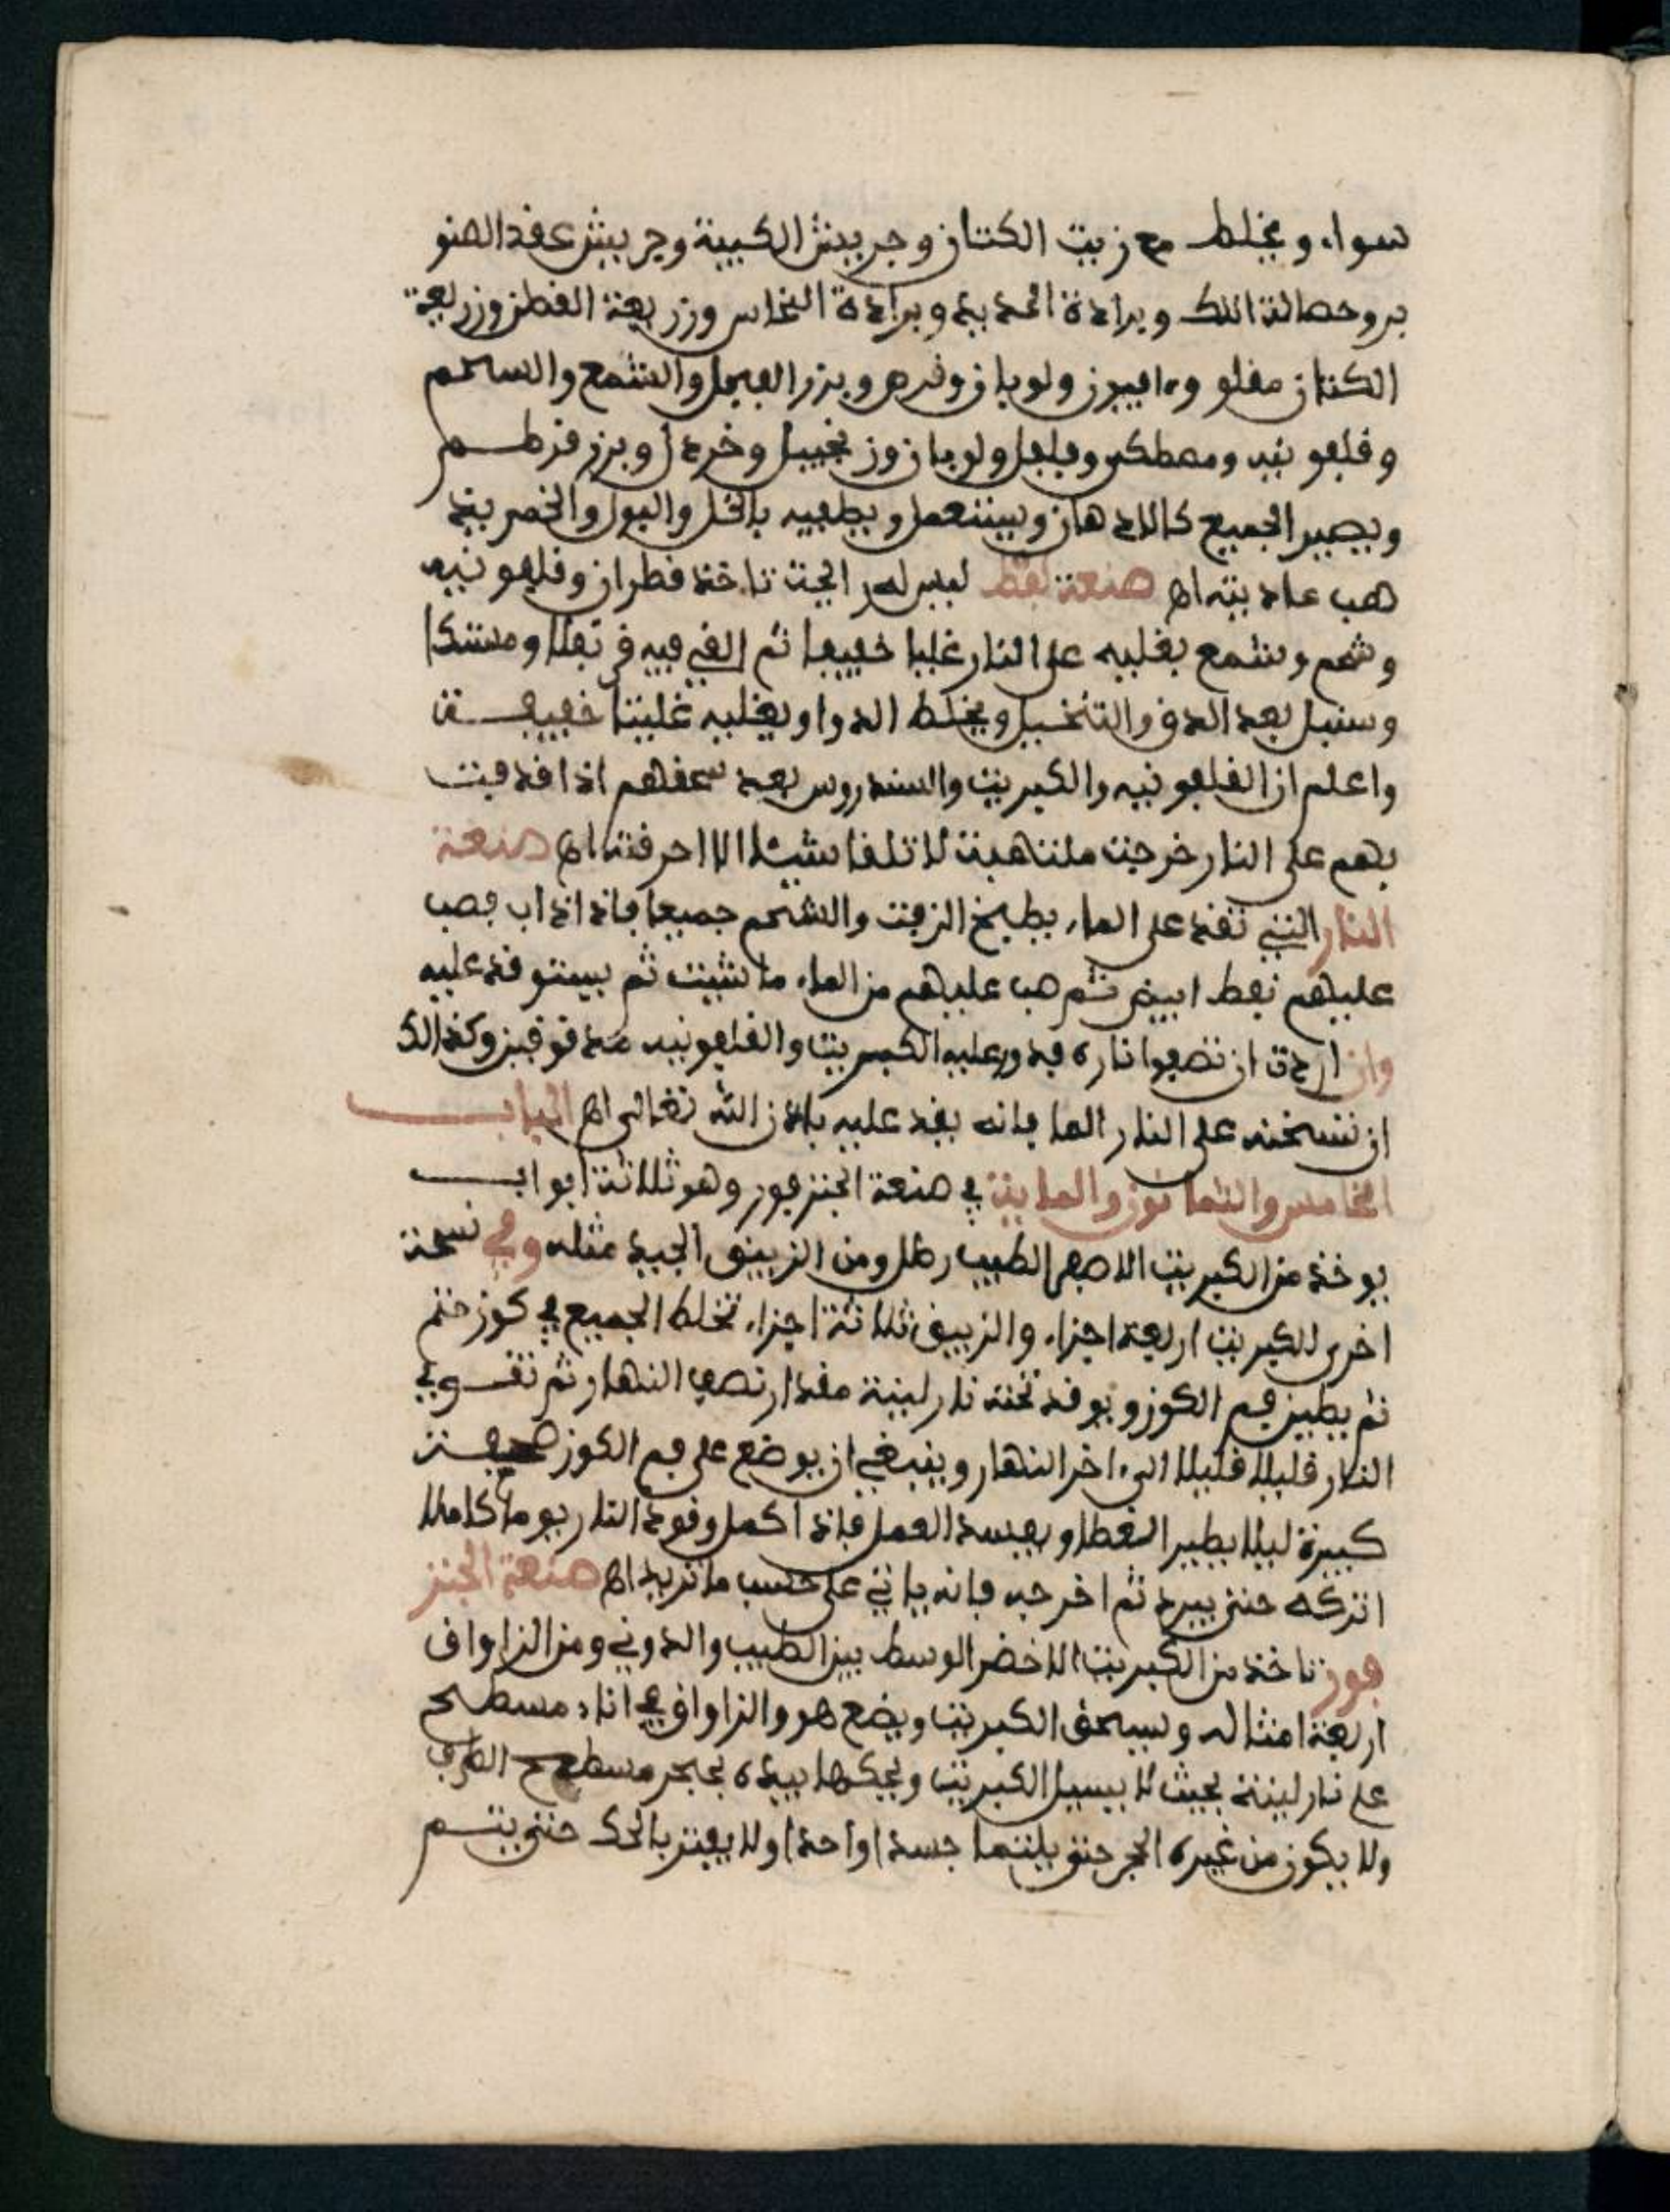 سواء ويخلط مع زيت الكتان وجربيش الكبية وجربيش عقد الصنو
بر وحصالة اللك وبرادة الحديد وبرادة النحاس وزريعة القطن وزريعة
الكتان مقلو وافيون ولوبان وبزر الفجل والشمع والسمسم
وقلفونيه ومصطكى وفلفل ولوبان وزنجبيل وخردل وبزر قرطم
ويصير الجميع كالادهان ويستعمل ويطفيه بالخل والبول والخمر يذ
هب عاديته اه صنعة نفط ليس له رايحة تاخذ قطران وقلفونيه
وشحم وشمع يغليه على النار غليا خفيفا ثم الق فيه قرنفلا ومسكا
وسنبل بعد الدق والتنخيل ويخلط الدوا ويغليه غليتا خفيفة
واعلم ان القلفونيه والكبريت والسندروس بعد سحقهم اذا قذفت
بهم على النار خرجت ملتهبة لا تلقا شيئا الا احرقته اه صنعة
النار التي تقد على الماء يطبخ الزفت والشحم جميعا فاذا ذاب فصب
عليهم نفط ابيض ثم صب عليهم من الماء ما شيت ثم يستوقد عليه
وان اردت ان تصفوا ناره فذور عليه الكبريت والقلفونيه مدقوقين وكذالك
ان تسخنه على النار الما فانه يقد عليه باذن الله تعالى اه الباب
الخامس والثمانون والماية في صنعة الجنزفور وهو ثلاثة ابواب
يوخذ من الكبريت الاصفر الطيب رطل ومن الزيبق الجيد مثله وفي نسخة
اخرى للكبريت اربعة اجزاء والزيبق ثلاثة اجزاء تخلط الجميع في كوز ختم
ثم يطين فم الكوز ويوقد تحته نار لينة مقدار نصف النهار ثم تقوي
النار قليلا قليلا الى اخر النهار وينبغي ان يوضع على فم الكوز صحفة
كبيرة ليلا يطير الغطا ويفسد العمل فاذا اكمل وقود النار يوما كاملا
اتركه حتى يبرد ثم اخرجه فانه ياتي على حسب ما تريد اه صنعة الجنز
فور تاخذ من الكبريت الاخضر الوسط بين الطيب والدوني ومن الزاواق
اربعة امثاله ويسحق الكبريت ويضع هو والزاواق في اناء مسطح
على نار لينة بحيث لا يسيل الكبريت ويحكها بيده بحجر مسطح الطرف
ولا يكون من غيره الحجر حتى يلتما جسدا واحدا ولا يفتر بالحك حتى يتم